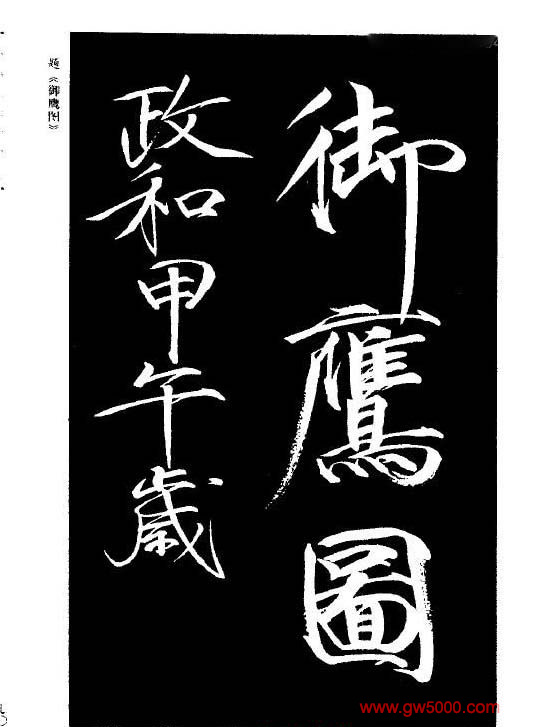 御鷹圖
政和甲午歲
题《御鹰图》
www.gw5000.com